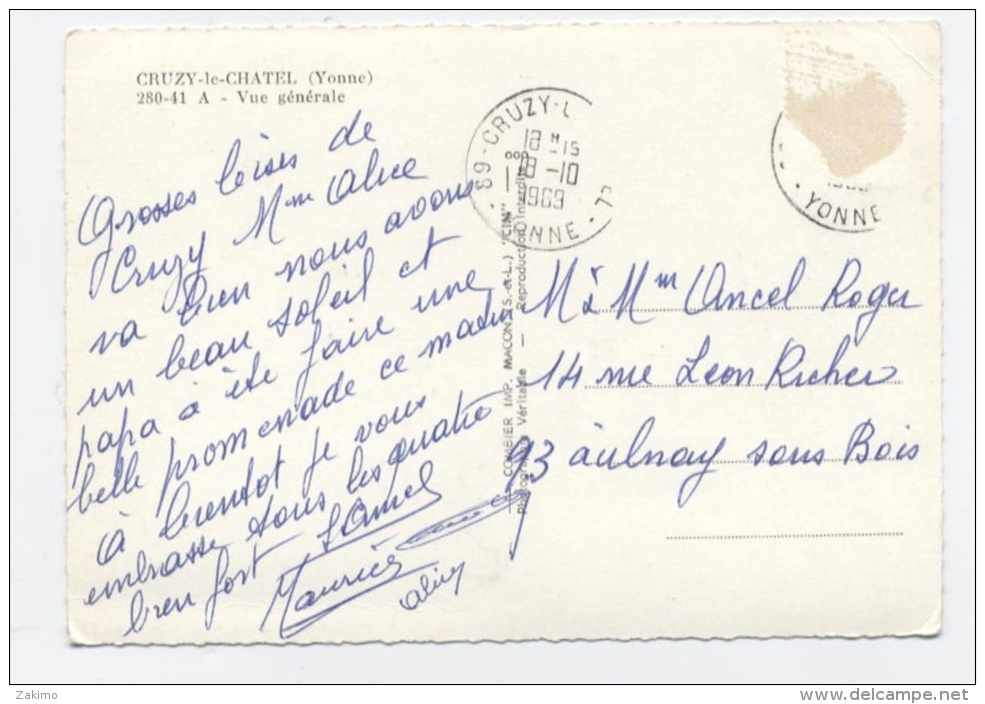 CRUZY-le-CHATEL (Yonne)
280-41 A - Vue générale
Grosses bises de
Cruzy Mme Alice
va bien nous avons
un beau soleil et
papa a été faire une
belle promenade ce matin
à bientot je vous
embrasse tous les quatre
bien fort
Maurice
89-CRUZY-L
18 H 15
18-10
1969
YONNE
YONNE
COMBIER IMP. MACON (S.-et-L.) "CIM"
Photographie Véritable — Reproduction Interdite
M & Mme Ancel Roger
14 rue Leon Richer
93 aulnay sous Bois
Zakimo
www.delcampe.net